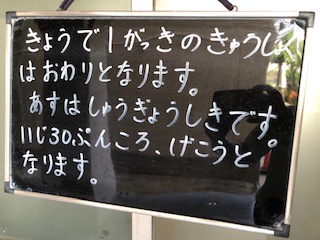 きょうで1がっきのきゅうしょく
はおわりとなります。
あすはしゅうぎょうしきです。
11じ30ぷんころ、げこうと
なります。